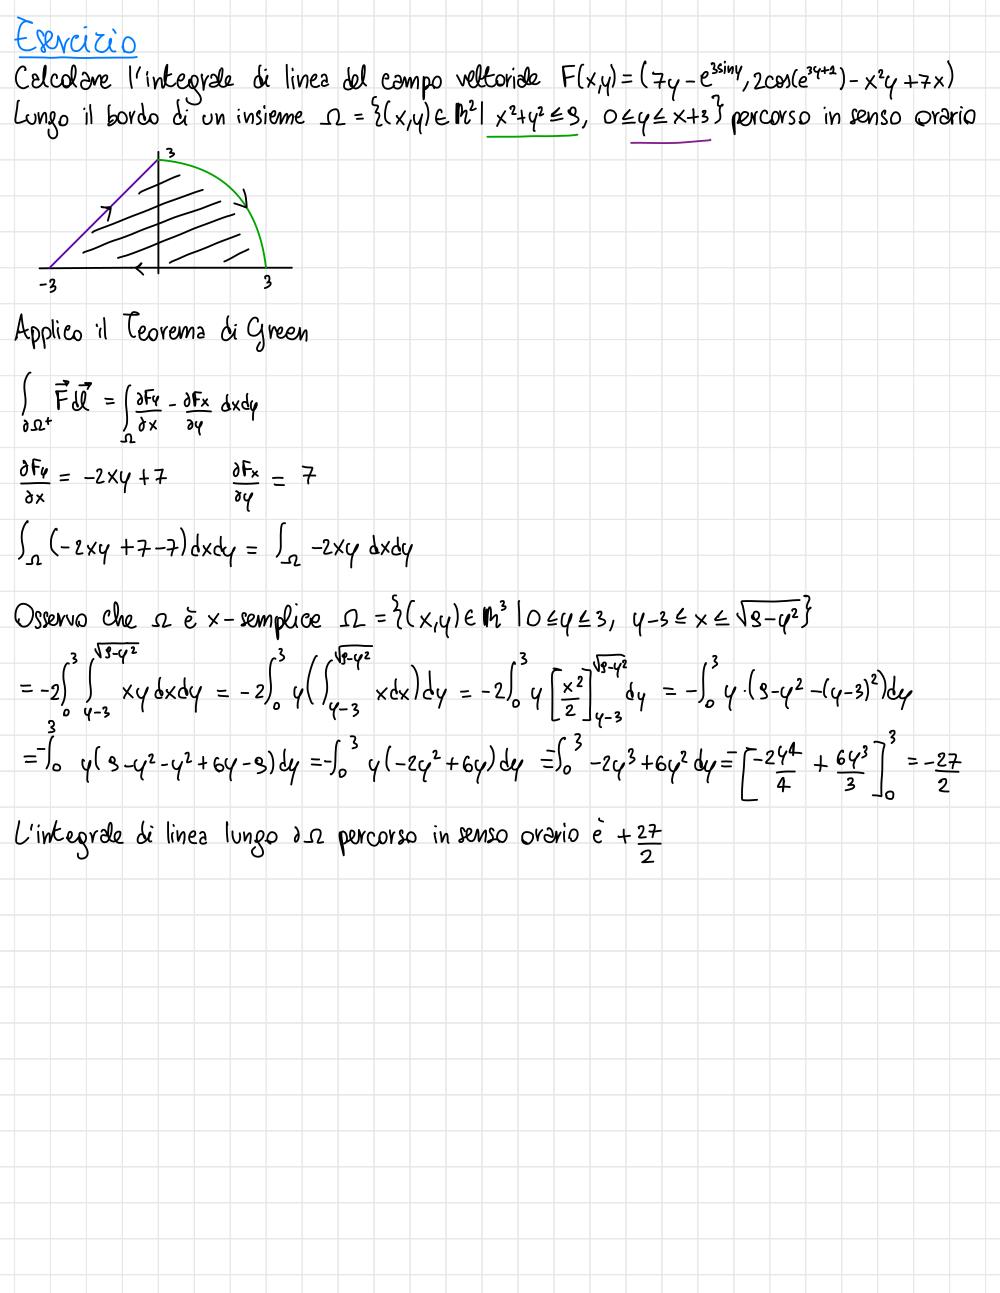 Esercizio
Calcolare l'integrale di linea del campo vettoriale F(x,y) = (7y - e^{3siny}, 2cos(e^{3y+1}) - x²y + 7x)
Lungo il bordo di un insieme Ω = {(x,y) ∈ ℝ² | x²+y² ≤ 9, 0 ≤ y ≤ x+3} percorso in senso orario
3
-3 3
Applico il Teorema di Green
∫_{∂Ω⁺} F⃗ dl⃗ = ∫_Ω ∂Fy/∂x - ∂Fx/∂y dxdy
∂Fy/∂x = -2xy + 7 ∂Fx/∂y = 7
∫_Ω (-2xy + 7 - 7) dxdy = ∫_Ω -2xy dxdy
Osservo che Ω è x-semplice Ω = {(x,y) ∈ ℝ³ | 0 ≤ y ≤ 3, y-3 ≤ x ≤ √(9-y²)}
= -2∫_0^3 ∫_{y-3}^{√(9-y²)} xy dxdy = -2∫_0^3 y(∫_{y-3}^{√(9-y²)} xdx) dy = -2∫_0^3 y [x²/2]_{y-3}^{√(9-y²)} dy = -∫_0^3 y·(9-y²-(y-3)²)dy
= -∫_0^3 y(9-y²-y²+6y-9) dy = -∫_0^3 y(-2y²+6y) dy = -∫_0^3 -2y³+6y² dy = -[-2y⁴/4 + 6y³/3]_0^3 = -27/2
L'integrale di linea lungo ∂Ω percorso in senso orario è +27/2